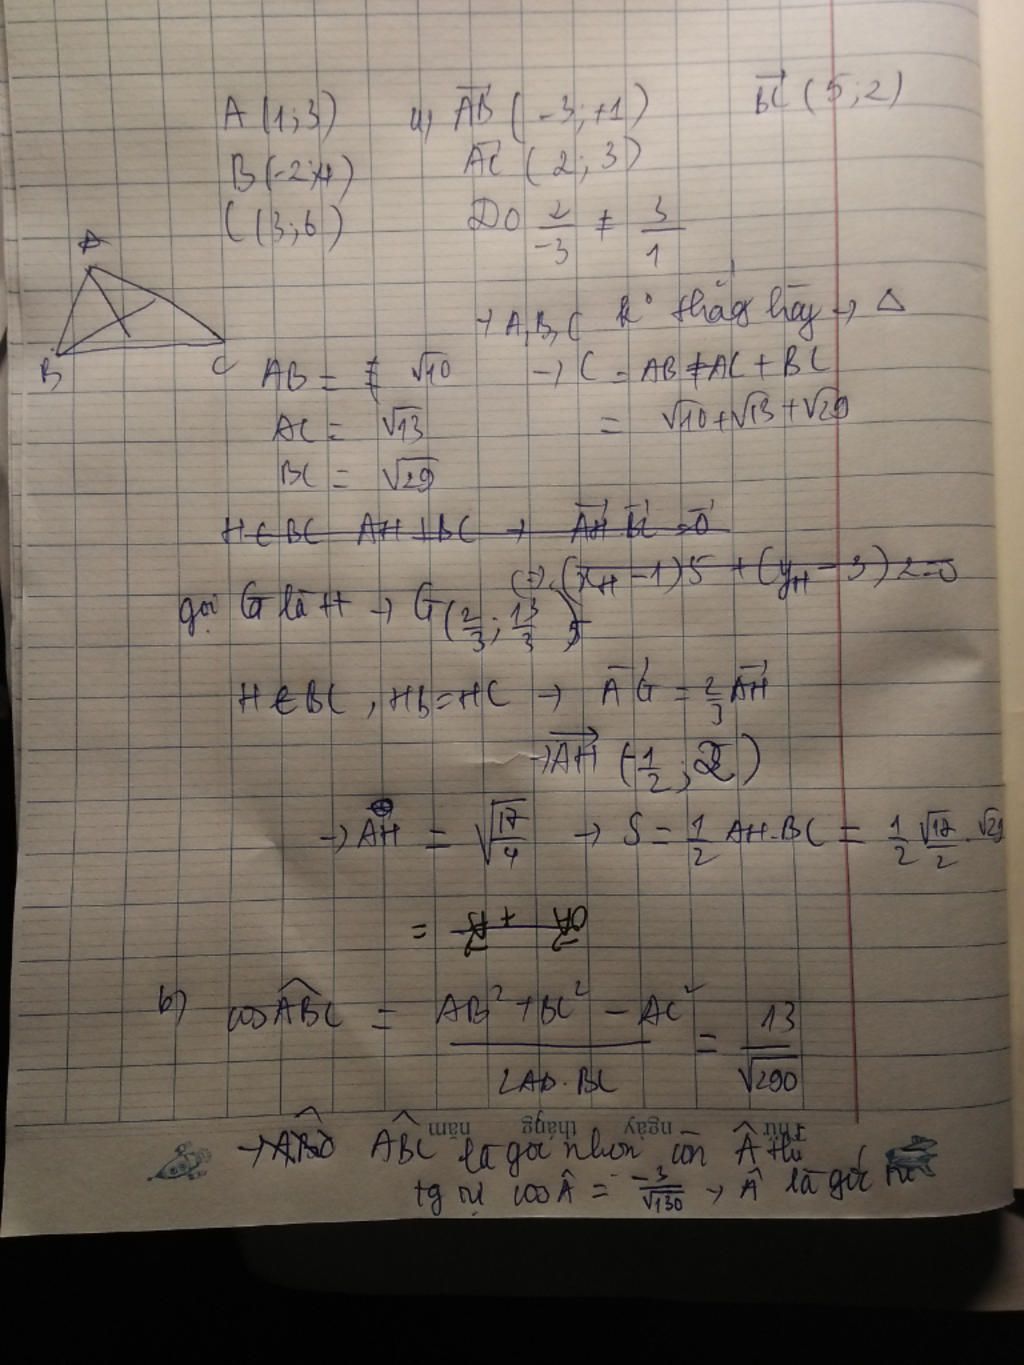 A (1;3) a) \overrightarrow{AB} (-3;+1) \overrightarrow{BC} (5;2)
B (-2;4) \overrightarrow{AC} (2;3)
C (3;6) Do \frac{2}{-3} ≠ \frac{3}{1}
A
→ A,B,C k° thẳg hàg → Δ
B C
AB = √10 → C = AB + AC + BC
AC = √13 = √10 + √13 + √29
BC = √29
H ∈ BC AH ⊥ BC → \overrightarrow{AH} \overrightarrow{BC} = \overrightarrow{0}
(=) (x_H - 1) 5 + (y_H - 3) 2 = 0
gọi G là H → G (\frac{2}{3}; \frac{13}{3})
H ∈ BC, HB = HC → \overrightarrow{AG} = \frac{2}{3} \overrightarrow{AH}
→ \overrightarrow{AH} (-\frac{1}{2}; 2)
→ AH = \sqrt{\frac{17}{4}} → S = \frac{1}{2} AH.BC = \frac{1}{2} \frac{√17}{2} . √29
=
b) cos \widehat{ABC} = \frac{AB² + BC² - AC²}{2AB.BC} = \frac{13}{√290}
Thứ ngày tháng năm
→ \widehat{ABC} là góc nhọn còn \widehat{A} thì
tg tự cos \widehat{A} = \frac{-3}{√130} → \widehat{A} là góc tù